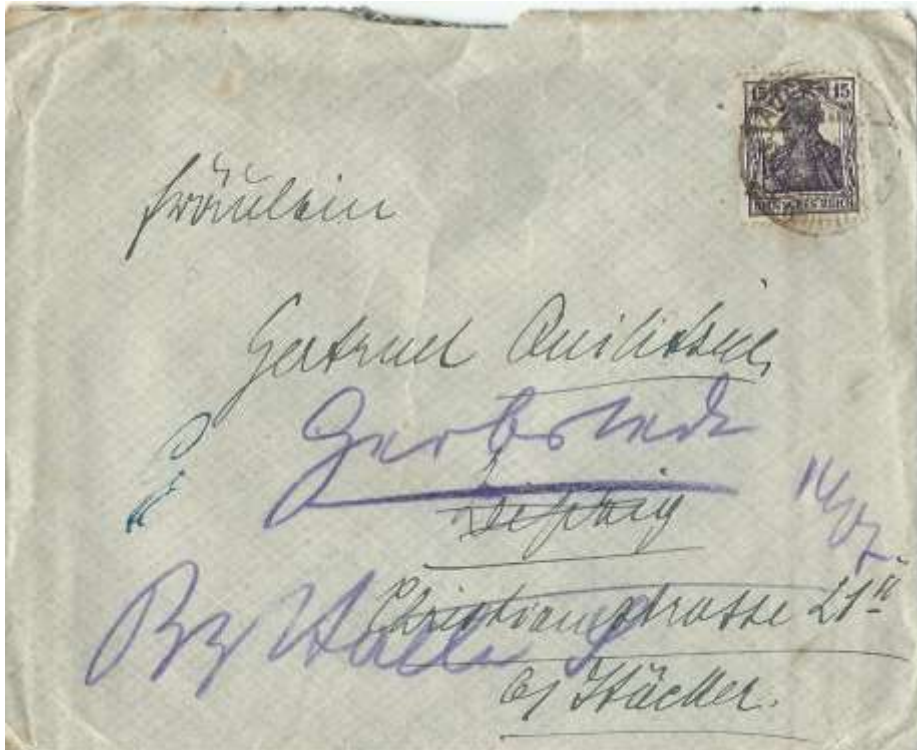 15 15
DEUTSCHES REICH
Fräulein
Gertrud
Gerbstedt
Leipzig
Christianstrasse 21 II
Bz Halle S
b/ Häcker.